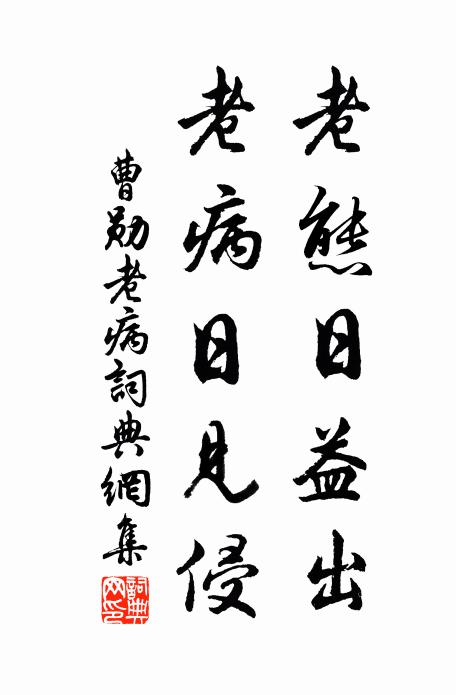 老態日益出
老病日見侵
曹勛老病詞典網集
詞典网印